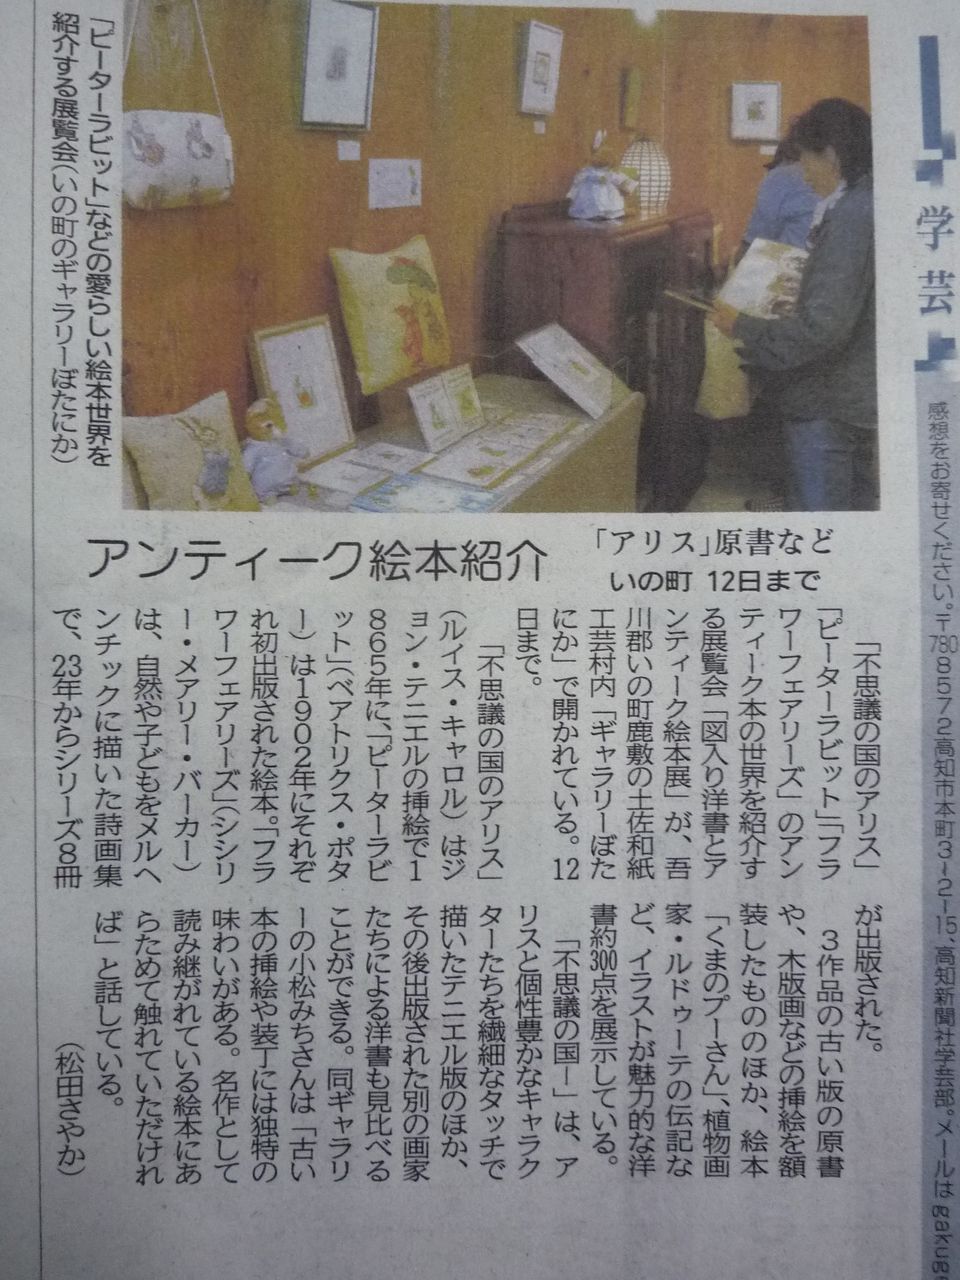 学芸
感想をお寄せください。〒780-8572高知市本町3-2-15、高知新聞社学芸部。メールはgakuge
「ピーターラビット」などの愛らしい絵本世界を
紹介する展覧会(いの町のギャラリーぼたにか)
アンティーク絵本紹介
「アリス」原書など
いの町 12日まで
「不思議の国のアリス」
「ピーターラビット」「フラ
ワーフェアリーズ」のアン
ティーク本の世界を紹介す
る展覧会「図入り洋書とア
ンティーク絵本展」が、吾
川郡いの町鹿敷の土佐和紙
工芸村内「ギャラリーぼた
にか」で開かれている。12
日まで。
「不思議の国のアリス」
(ルイス・キャロル)はジ
ョン・テニエルの挿絵で1
865年に、「ピーターラビ
ット」(ベアトリクス・ポタ
ー)は1902年にそれぞ
れ初出版された絵本。「フラ
ワーフェアリーズ」(シシリ
ー・メアリー・バーカー)
は、自然や子どもをメルヘ
ンチックに描いた詩画集
で、23年からシリーズ8冊
が出版された。
3作品の古い版の原書
や、木版画などの挿絵を額
装したもののほか、絵本
「くまのプーさん」、植物画
家・ルドゥーテの伝記な
ど、イラストが魅力的な洋
書約300点を展示している。
「不思議の国ー」は、ア
リスと個性豊かなキャラク
ターたちを繊細なタッチで
描いたテニエル版のほか、
その後出版された別の画家
たちによる洋書も見比べる
ことができる。同ギャラリ
ーの小松みちさんは「古い
本の挿絵や装丁には独特の
味わいがある。名作として
読み継がれている絵本にあ
らためて触れていただけれ
ば」と話している。
(松田さやか)